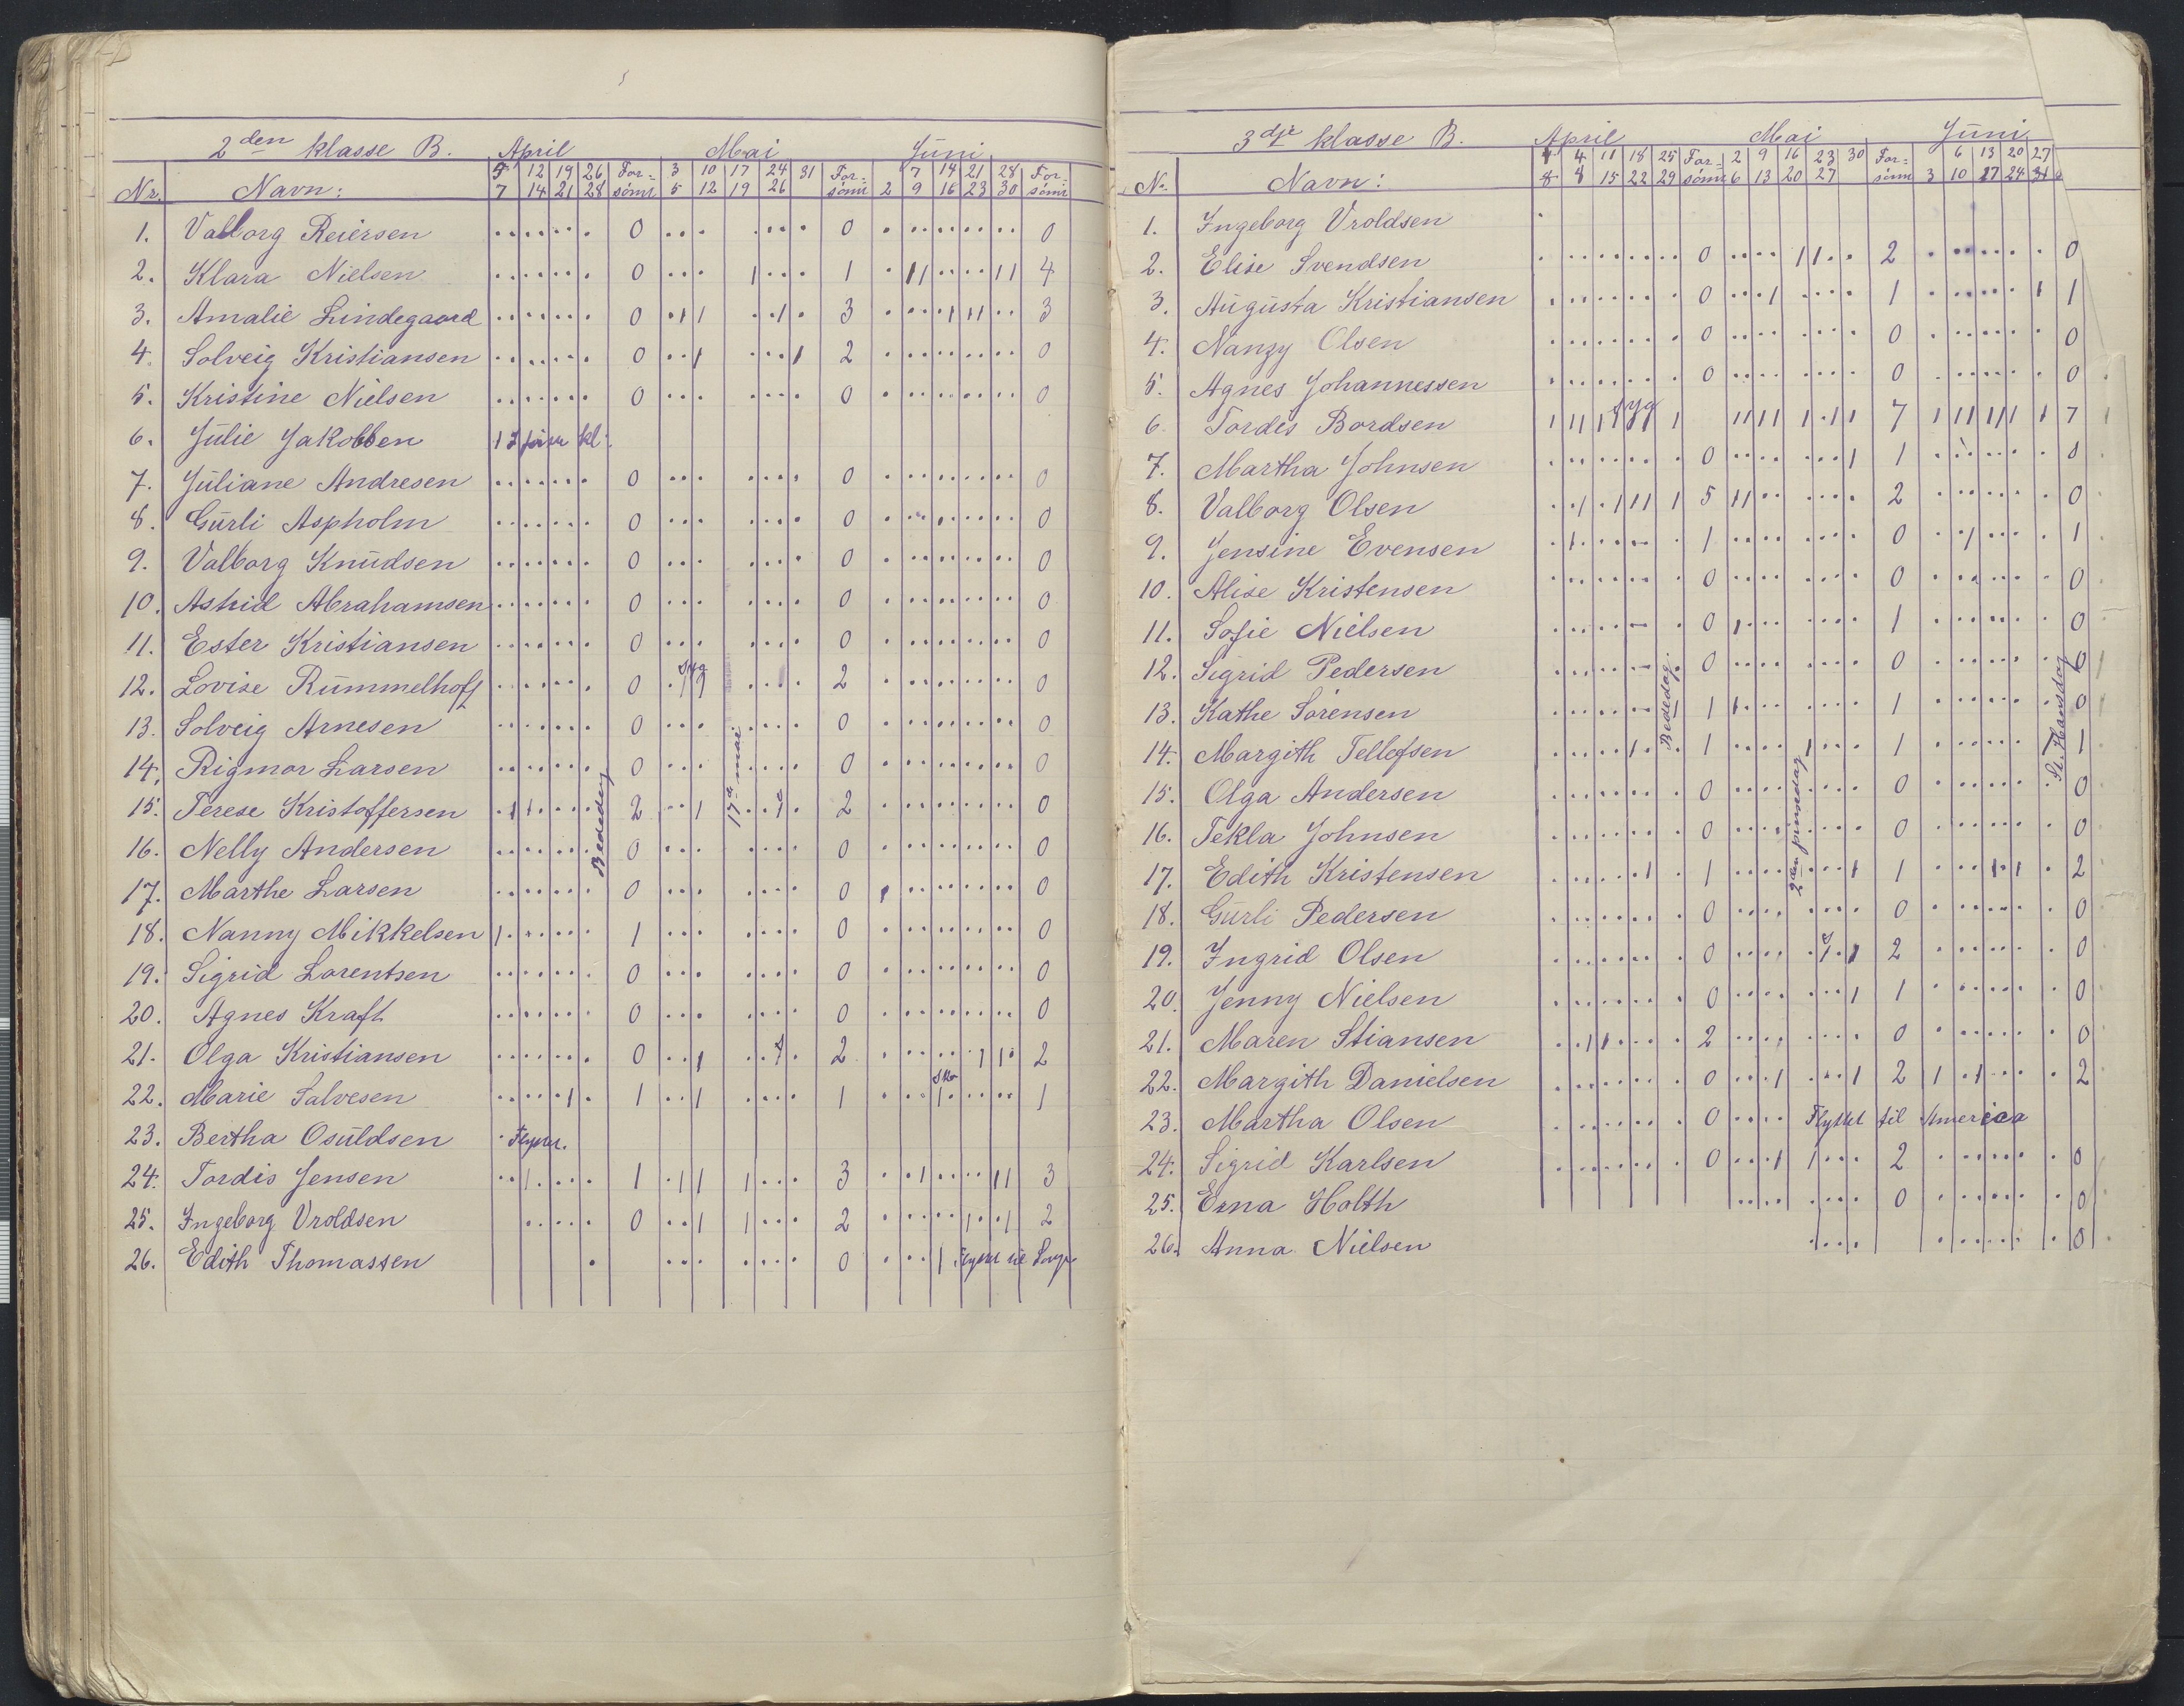 2den klasse B. April Mai Juni
5 12 19 26 For- 3 10 17 24 31 For- 7 14 21 28 For-
Nr. Navn: 7 14 21 28 sömt 5 12 19 26 sömt 2 9 16 23 30 sömt
1. Valborg Reiersen 0 0 0
2. Klara Nielsen 0 1 4
3. Amalie Lindegaard 0 3 3
4. Solveig Kristiansen 0 2 0
5. Kristine Nielsen 0 0 0
6. Julie Jakobsen kl.
7. Juliane Andresen 0 0 0
8. Gurli Aspholm 0 0 0
9. Valborg Knudsen 0 0 0
10. Astrid Abrahamsen 0 0 0
11. Ester Kristiansen 0 0 0
12. Lovise Rummelhoff 0 syg 2 0
13. Solveig Arnesen 0 0 0
14. Rigmor Larsen 0 0 0
15. Terese Kristoffersen 2 2 0
16. Nelly Andersen 0 0 0
17. Marthe Larsen 0 0 0
18. Nanny Mikkelsen 1 0 0
19. Sigrid Lorentsen 0 0 0
20. Agnes Kraft 0 0 0
21. Olga Kristiansen 0 2 2
22. Marie Salvesen 1 1 1
23. Bertha Osuldsen Flyttet.
24. Tordis Jensen 1 3 3
25. Ingeborg Vroldsen 0 2 2
26. Edith Thomassen 0 Flyttet til
Bededag
17de mai
3dje klasse B. April Mai Juni
4 11 18 25 For- 2 9 16 23 30 For- 6 13 20 27
Nr. Navn: 8 8 15 22 29 sömt 6 13 20 27 sömt 3 10 17 24
1. Ingeborg Vroldsen
2. Elise Svendsen 0 2 0
3. Augusta Kristiansen 0 1 1
4. Nanzy Olsen 0 0 0
5. Agnes Johannessen 0 0 0
6. Tordis Bordsen syg 7 7
7. Martha Johnsen 0 1 0
8. Valborg Olsen 5 2 0
9. Jensine Evensen 1 0 1
10. Alise Kristensen 0 0 0
11. Sofie Nielsen 0 1 0
12. Sigrid Pedersen 0 0 0
13. Kathe Sörensen 1 1 0
14. Margith Tellefsen 1 1 1
15. Olga Andersen 0 0 0
16. Tekla Johnsen 0 0 0
17. Edith Kristensen 1 1 2
18. Gurli Pedersen 0 0 0
19. Ingrid Olsen 0 2 0
20. Jenny Nielsen 0 1 0
21. Maren Stiansen 2 0 0
22. Margith Danielsen 0 2 2
23. Martha Olsen 0 Flyttet til America
24. Sigrid Karlsen 0 2 0
25. Erna Holth 0 0
26. Anna Nielsen 0
Bededag.
2den pinsedag
St. Hansdag